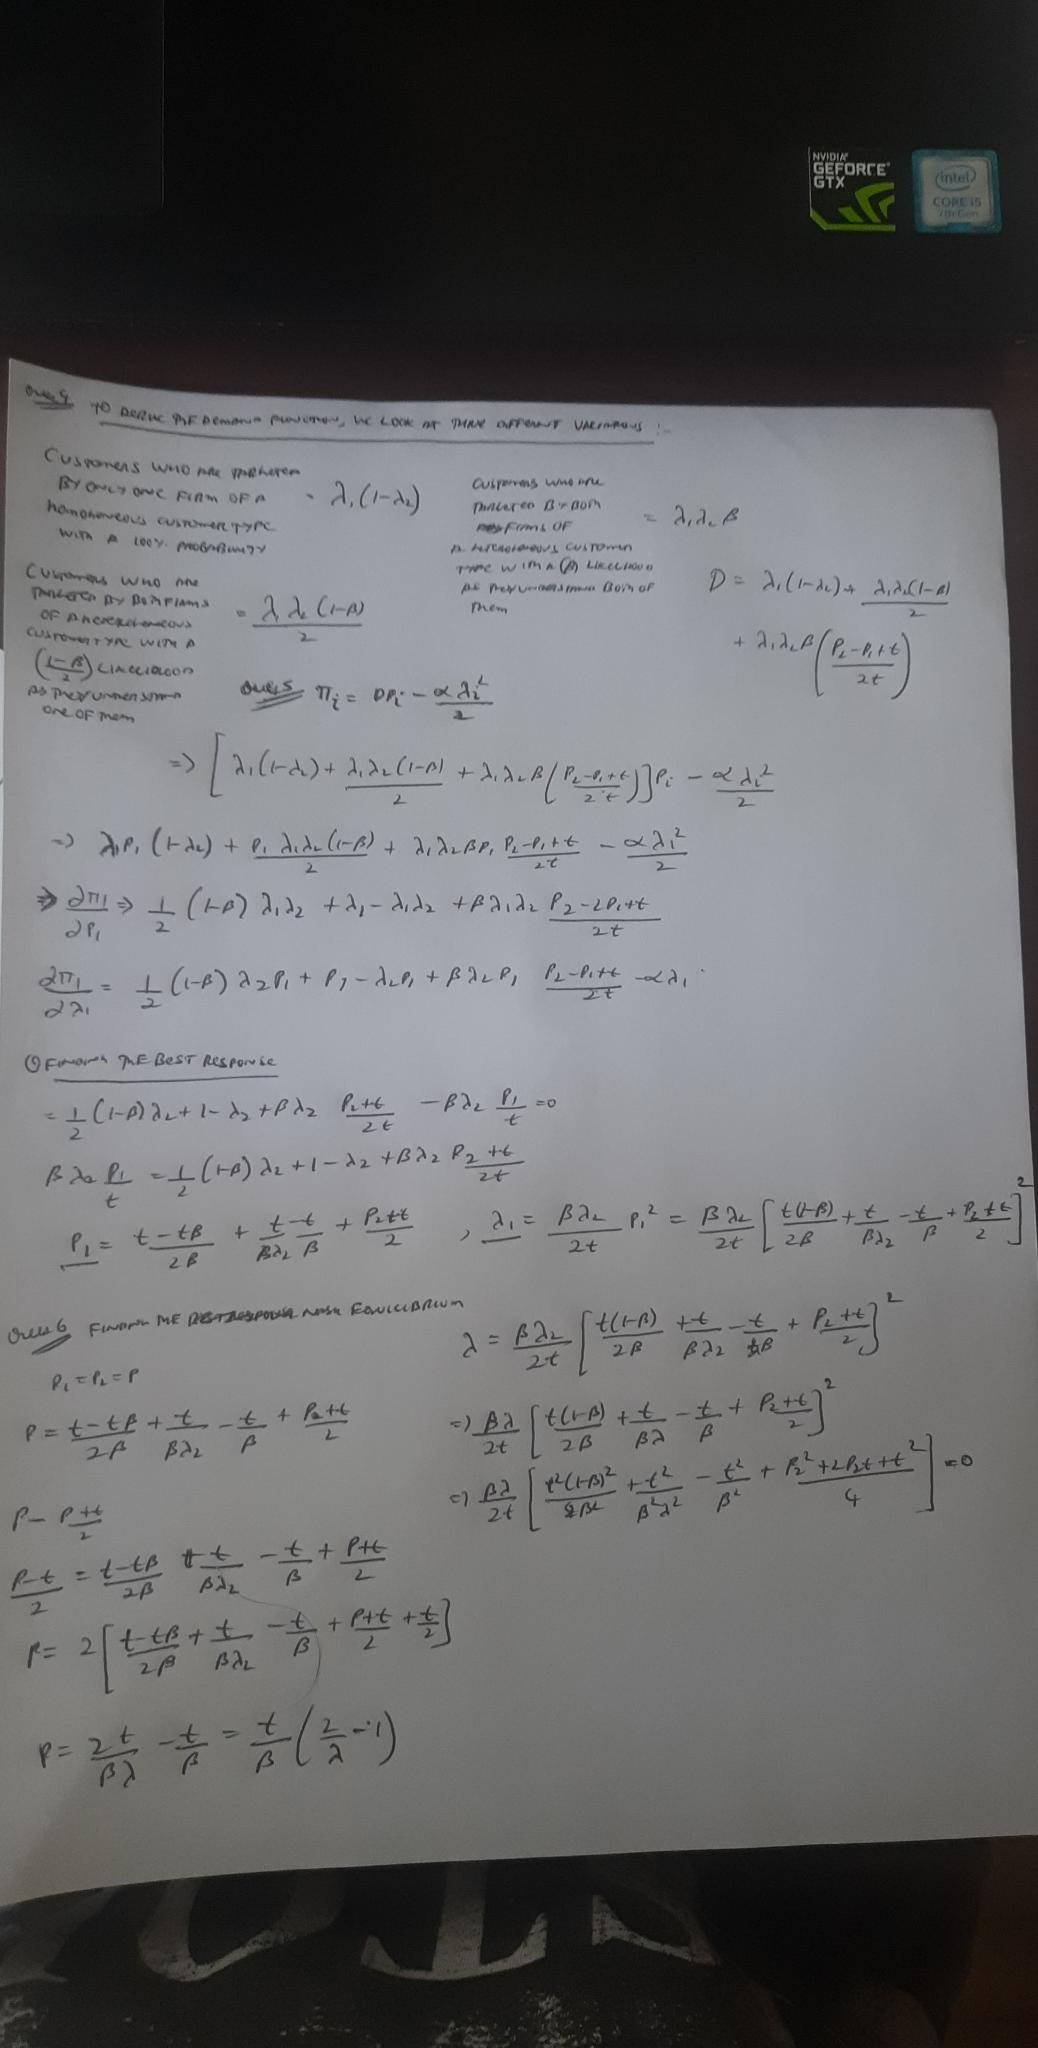 NVIDIA
GEFORCE
GTX
intel
CORE i5
7th Gen
TO DERIVE THE DEMAND FUNCTION, WE LOOK AT THREE DIFFERENT :-
CUSTOMERS WHO ARE TARGETED
BY ONLY ONE FIRM OF A = λ₁(1-λ₂)
HOMOGENEOUS CUSTOMER TYPE
WITH A 100% PROBABILITY
CUSTOMERS WHO ARE
TARGETED BY BOTH
FIRMS OF = λ₁λ₂β
A HETEROGENEOUS CUSTOMER
TYPE WITH A (β) LIKELIHOOD
AS THEY UNDERSTAND BOTH OF
THEM
CUSTOMERS WHO ARE
TARGETED BY BOTH FIRMS
OF A HETEROGENEOUS = λ₁λ₂(1-β)/2
CUSTOMER TYPE WITH A
((1-β)/2) LIKELIHOOD
AS THEY UNDERSTAND
ONE OF THEM
D = λ₁(1-λ₂) + λ₁λ₂(1-β)/2
+ λ₁λ₂β((P₂-P₁+t)/2t)
Ques 5 πᵢ = DPᵢ - αλᵢ²/2
=> [λ₁(1-λ₂) + λ₁λ₂(1-β)/2 + λ₁λ₂β((P₂-P₁+t)/2t)]Pᵢ - αλᵢ²/2
=> λ₁P₁(1-λ₂) + P₁λ₁λ₂(1-β)/2 + λ₁λ₂βP₁ (P₂-P₁+t)/2t - αλ₁²/2
=> ∂π₁/∂P₁ => 1/2 (1-β) λ₁λ₂ + λ₁ - λ₁λ₂ + βλ₁λ₂ (P₂-2P₁+t)/2t
∂π₁/∂λ₁ = 1/2 (1-β) λ₂P₁ + P₁ - λ₂P₁ + βλ₂P₁ (P₂-P₁+t)/2t - αλ₁
FINDING THE BEST RESPONSE
= 1/2 (1-β)λ₂ + 1 - λ₂ + βλ₂ (P₂+t)/2t - βλ₂ P₁/t = 0
βλ₂ P₁/t = 1/2 (1-β)λ₂ + 1 - λ₂ + βλ₂ (P₂+t)/2t
P₁ = (t-tβ)/2β + t/βλ₂ - t/β + (P₂+t)/2 , λ₁ = βλ₂/2t P₁² = βλ₂/2t [t(1-β)/2β + t/βλ₂ - t/β + (P₂+t)/2]²
Ques 6 FINDING THE NASH EQUILIBRIUM
P₁ = P₂ = P
P = (t-tβ)/2β + t/βλ₂ - t/β + (P₂+t)/2
P - (P+t)/2
(P-t)/2 = (t-tβ)/2β + t/βλ₂ - t/β + (P+t)/2
P = 2[(t-tβ)/2β + t/βλ₂ - t/β + (P+t)/2 + t/2]
P = 2t/βλ - t/β = t/β (2/λ - 1)
λ = βλ₂/2t [t(1-β)/2β + t/βλ₂ - t/β + (P₂+t)/2]²
=> βλ/2t [t(1-β)/2β + t/βλ - t/β + (P₂+t)/2]²
=> βλ/2t [t²(1-β)²/β² + t²/β²λ² - t²/β² + (P₂²+2P₂t+t²)/4] = 0